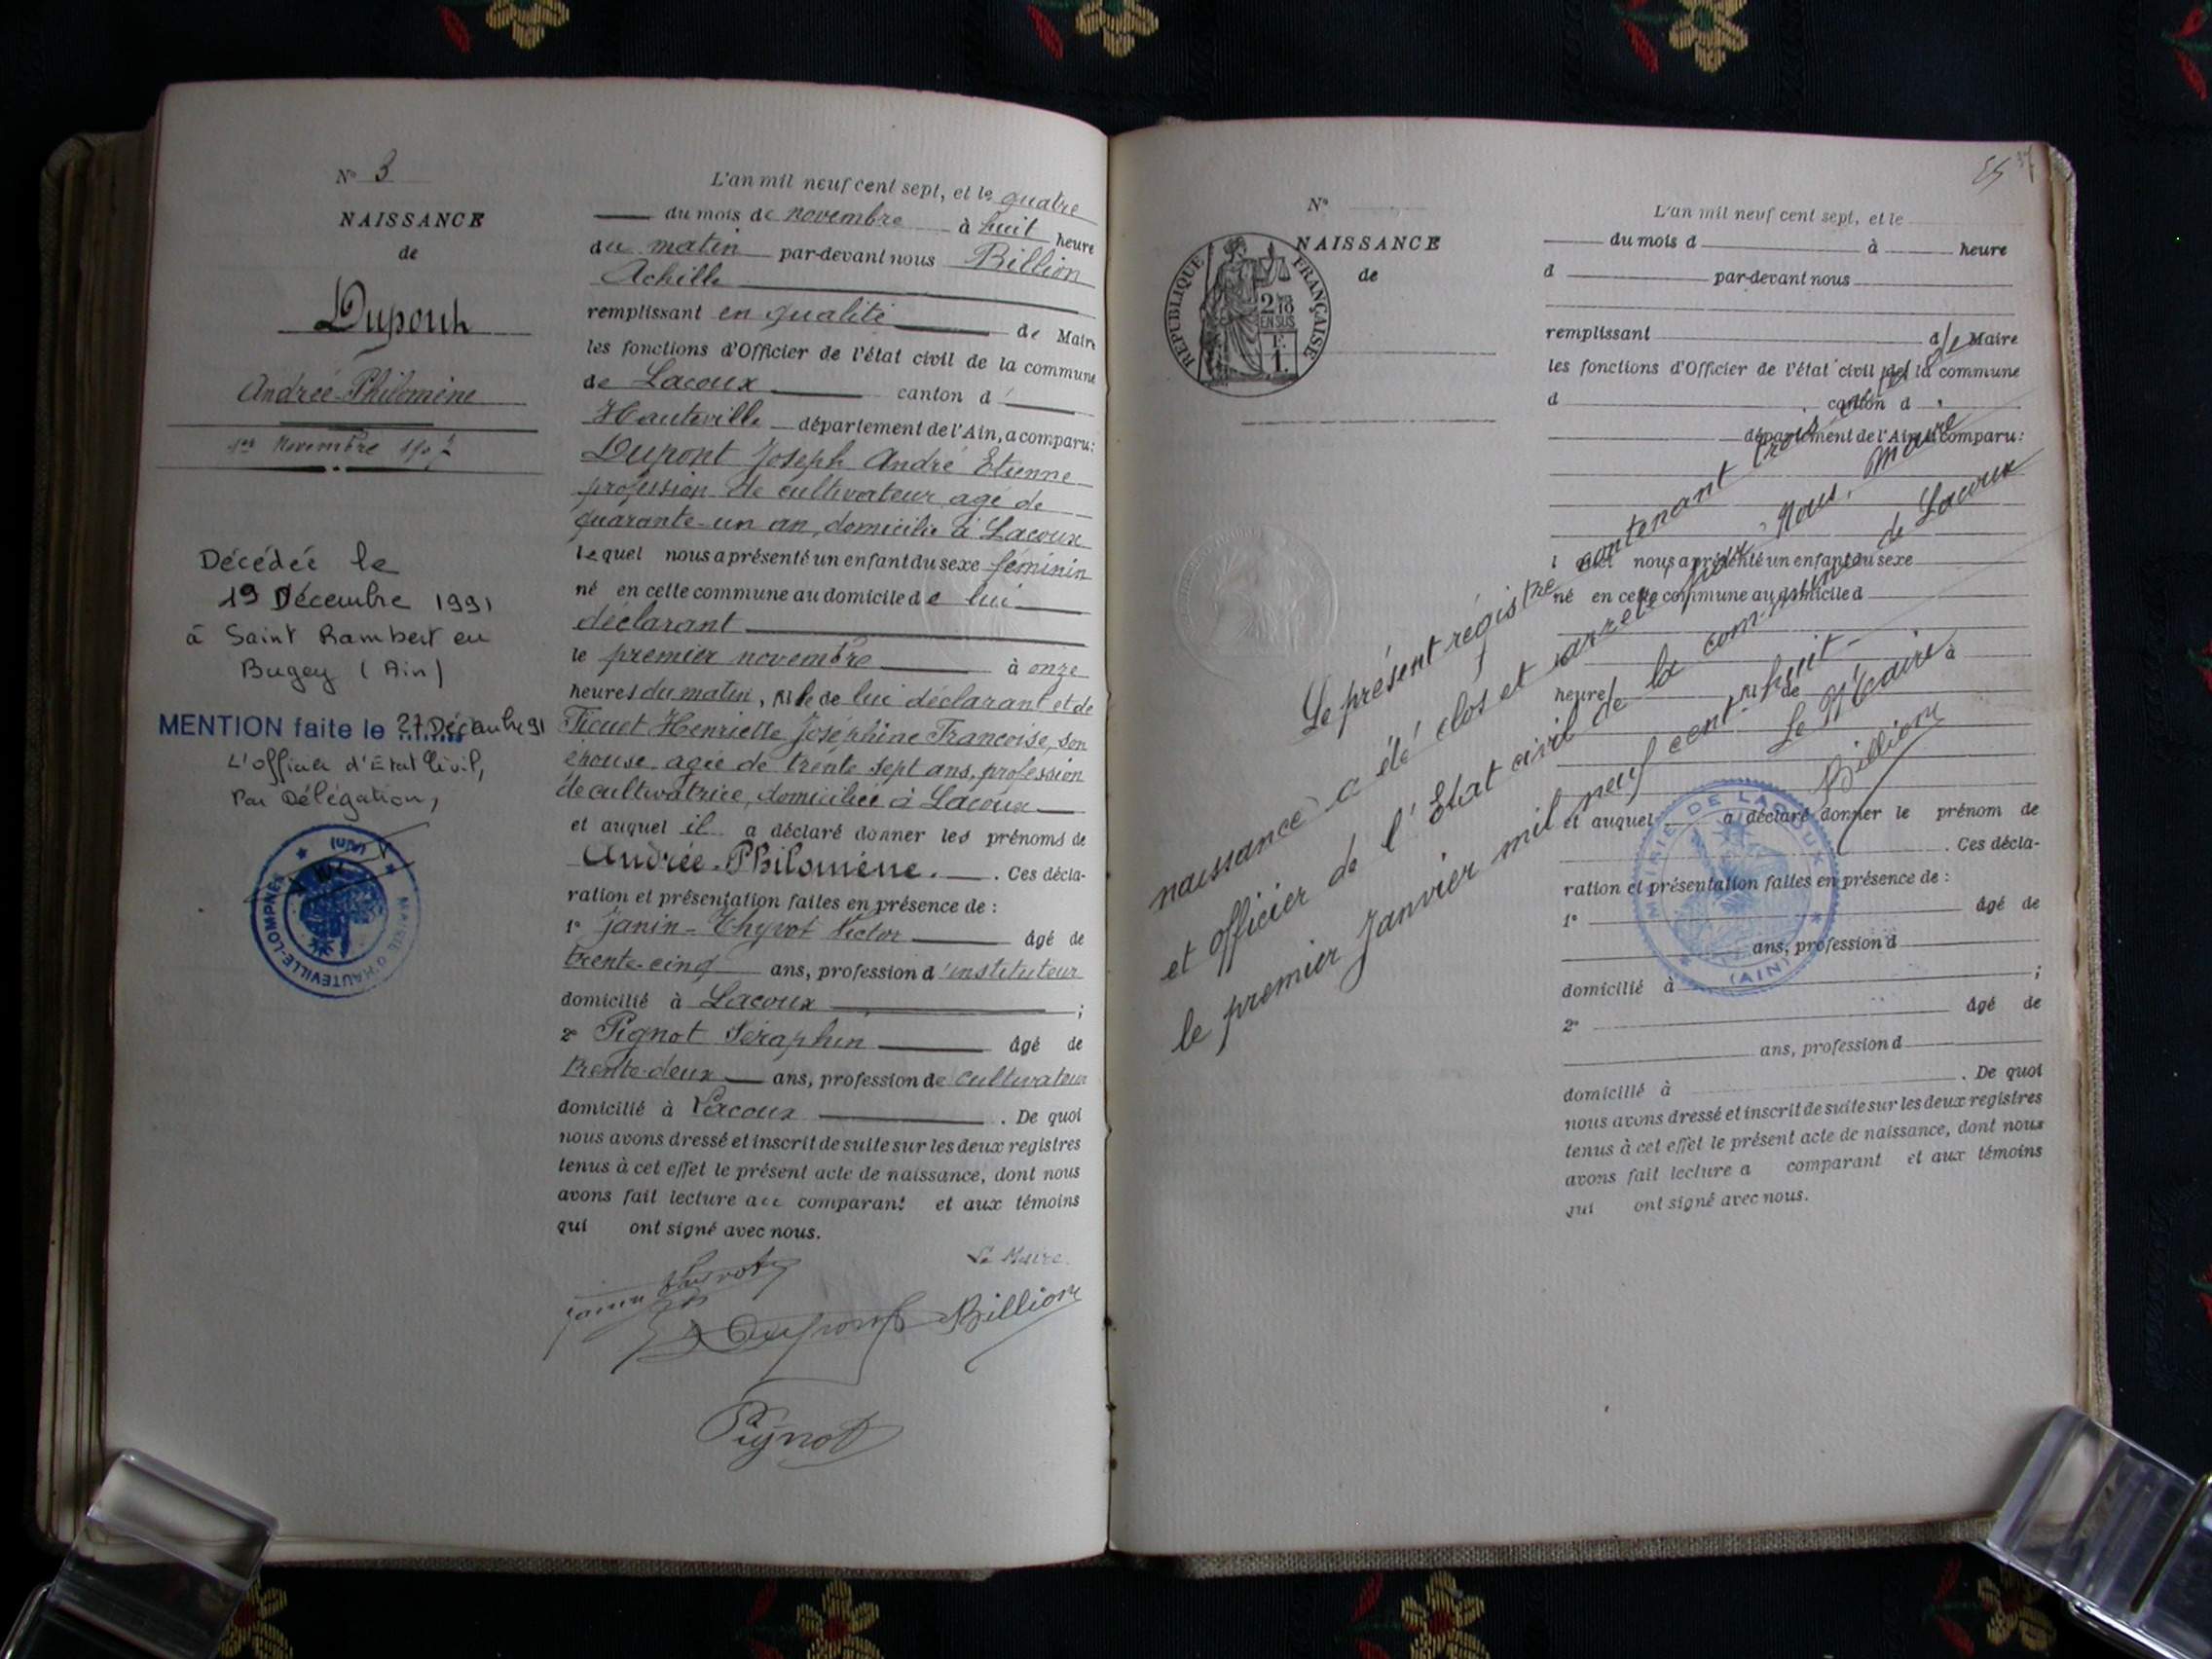 N° 3
NAISSANCE
de
Dupont
Andrée-Philomène
1er Novembre 1907
Décédée le
19 Décembre 1991
à Saint Rambert en
Bugey (Ain)
MENTION faite le 27 Décembre 91
L'officier d'Etat Civil,
Par Délégation,
MAIRIE D'HAUTEVILLE-LOMPNES
(AIN)
L'an mil neuf cent sept, et le quatre
du mois de novembre à huit heure
du matin par-devant nous Billion
Achille
remplissant en qualité de Maire
les fonctions d'Officier de l'état civil de la commune
de Lacoux canton d'
Hauteville département de l'Ain, a comparu:
Dupont Joseph André Etienne
profession de cultivateur agé de
quarante-un an, domicilié à Lacoux
lequel nous a présenté un enfant du sexe féminin
né en cette commune au domicile de lui
déclarant
le premier novembre à onze
heures du matin, fille de lui déclarant et de
Ticuet Henriette Joséphine Françoise, son
épouse, agée de trente sept ans, profession
de cultivatrice, domiciliée à Lacoux
et auquel il a déclaré donner les prénoms de
Andrée-Philomène. . Ces décla-
ration et présentation faites en présence de :
1° Janin-Thyvot Victor âgé de
trente-cinq ans, profession d'instituteur
domicilié à Lacoux ;
2° Pignot Séraphin âgé de
trente-deux ans, profession de cultivateur
domicilié à Lacoux . De quoi
nous avons dressé et inscrit de suite sur les deux registres
tenus à cet effet le présent acte de naissance, dont nous
avons fait lecture au comparant et aux témoins
qui ont signé avec nous.
Le Maire
Janin Thyvot
Dupont Billion
Pignot
37
N°
NAISSANCE
de
RÉPUBLIQUE FRANÇAISE
2/10
EN SUS
1 F.
L'an mil neuf cent sept, et le
du mois d à heure
d par-devant nous
remplissant de Maire
les fonctions d'Officier de l'état civil de la commune
d canton d
département de l'Ain, a comparu:
l quel nous a présenté un enfant du sexe
né en cette commune au domicile d
à
heure fil de
et auquel a déclaré donner le prénom de
. Ces décla-
ration et présentation faites en présence de :
1° âgé de
ans, profession d
domicilié à ;
2° âgé de
ans, profession d
domicilié à . De quoi
nous avons dressé et inscrit de suite sur les deux registres
tenus à cet effet le présent acte de naissance, dont nous
avons fait lecture a comparant et aux témoins
qui ont signé avec nous.
Le présent régistre contenant trois actes de
naissance a été clos et arrêté par Nous, Maire
et officier de l'Etat civil de la commune de Lacoux
le premier Janvier mil neuf cent huit
Le Maire
Billion
MAIRIE DE LACOUX
(AIN)